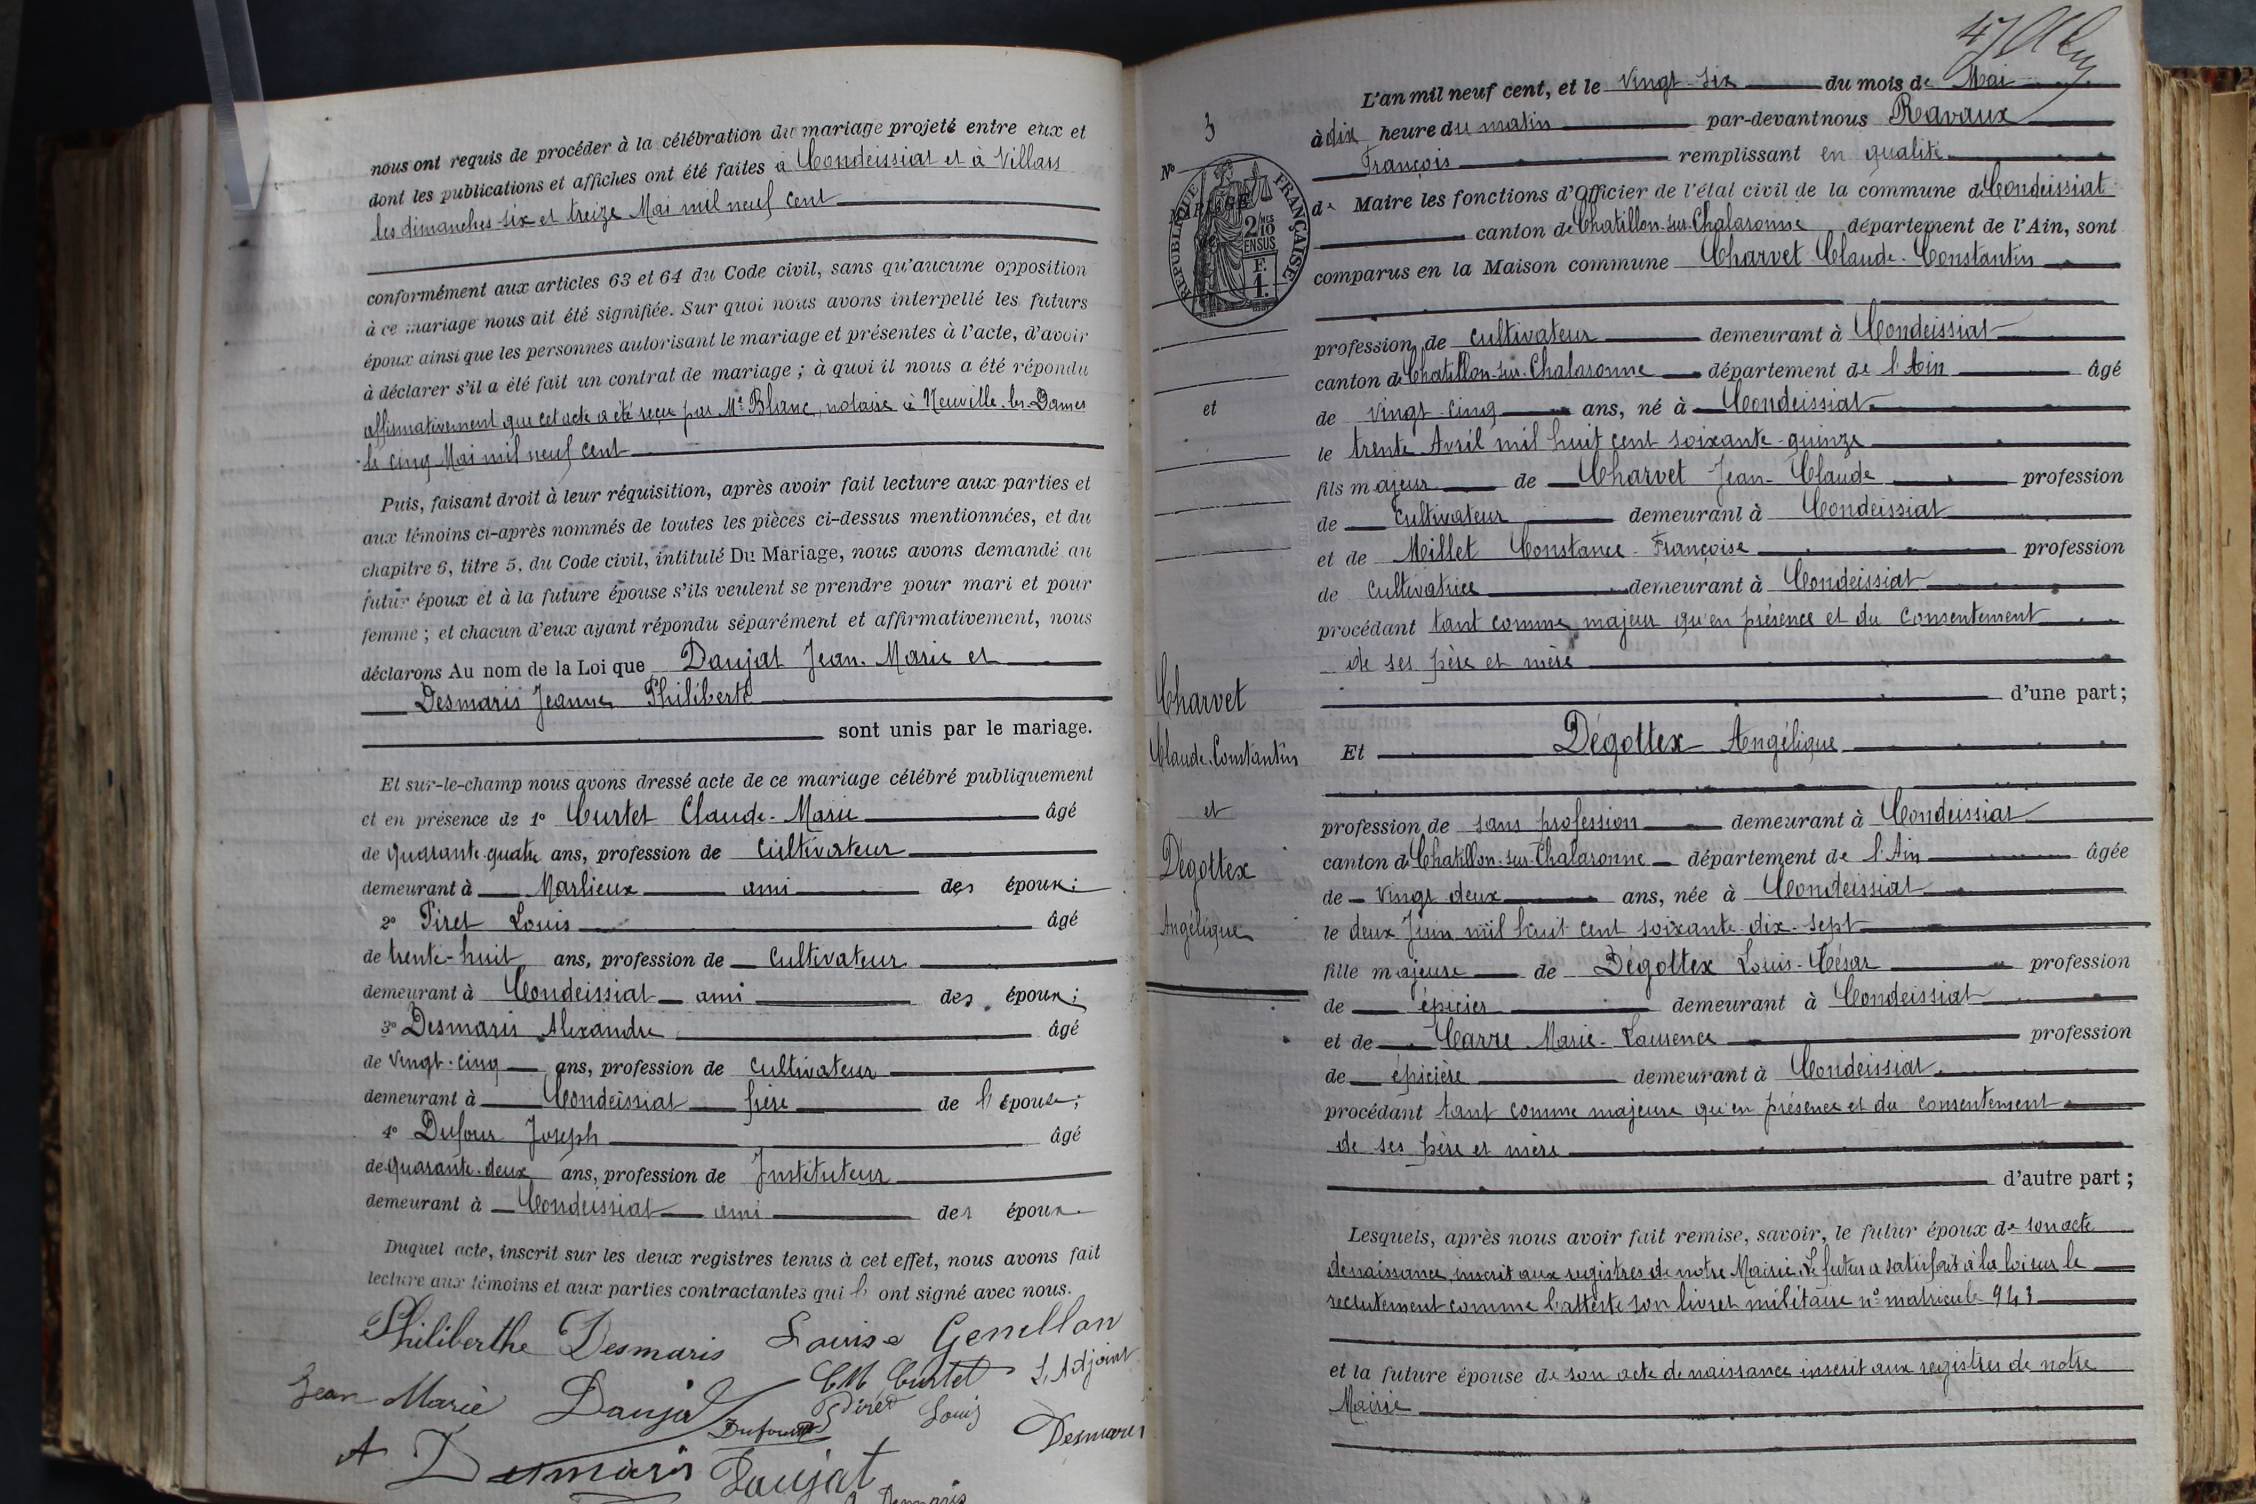 nous ont requis de procéder à la célébration du mariage projeté entre eux et
dont les publications et affiches ont été faites à Condeissiat et à Villars
les dimanches six et treize Mai mil neuf cent
conformément aux articles 63 et 64 du Code civil, sans qu'aucune opposition
à ce mariage nous ait été signifiée. Sur quoi nous avons interpellé les futurs
époux ainsi que les personnes autorisant le mariage et présentes à l'acte, d'avoir
à déclarer s'il a été fait un contrat de mariage ; à quoi il nous a été répondu
affirmativement que cet acte a été reçu par Me Blanc, notaire à Neuville-les-Dames
le cinq Mai mil neuf cent
Puis, faisant droit à leur réquisition, après avoir fait lecture aux parties et
aux témoins ci-après nommés de toutes les pièces ci-dessus mentionnées, et du
chapitre 6, titre 5, du Code civil, intitulé Du Mariage, nous avons demandé au
futur époux et à la future épouse s'ils veulent se prendre pour mari et pour
femme ; et chacun d'eux ayant répondu séparément et affirmativement, nous
déclarons Au nom de la Loi que Daujat Jean-Marie et
Desmaris Jeanne Philiberte
sont unis par le mariage.
Et sur-le-champ nous avons dressé acte de ce mariage célébré publiquement
et en présence de 1° Curtet Claude-Marie âgé
de quarante-quatre ans, profession de cultivateur
demeurant à Marlieux ami des époux ;
2° Piret Louis âgé
de trente-huit ans, profession de cultivateur
demeurant à Condeissiat ami des époux ;
3° Desmaris Alexandre âgé
de vingt-cinq ans, profession de cultivateur
demeurant à Condeissiat frère de l'épouse ;
4° Dufour Joseph âgé
de quarante-deux ans, profession de Instituteur
demeurant à Condeissiat ami des époux
Duquel acte, inscrit sur les deux registres tenus à cet effet, nous avons fait
lecture aux témoins et aux parties contractantes qui ont signé avec nous.
Philiberthe Desmaris Louise Genellon
Jean Marie Daujat CM Curtet L'Adjoint
Dufour Piret Louis Desmaris
A Desmaris Daujat
Desmaris
47
L'an mil neuf cent, et le vingt-six du mois de Mai
à dix heure du matin par-devant nous Ravaux
François remplissant en qualité
de Maire les fonctions d'Officier de l'état civil de la commune de Condeissiat
canton de Chatillon-sur-Chalaronne département de l'Ain, sont
comparus en la Maison commune Charvet Claude-Constantin
profession de cultivateur demeurant à Condeissiat
canton de Chatillon-sur-Chalaronne département de l'Ain âgé
de vingt-cinq ans, né à Condeissiat
le trente Avril mil huit cent soixante-quinze
fils majeur de Charvet Jean-Claude profession
de cultivateur demeurant à Condeissiat
et de Millet Constance-Françoise profession
de cultivatrice demeurant à Condeissiat
procédant tant comme majeur qu'en présence et du consentement
de ses père et mère
d'une part ;
Et Dégottex Angélique
profession de sans profession demeurant à Condeissiat
canton de Chatillon-sur-Chalaronne département de l'Ain âgée
de vingt-deux ans, née à Condeissiat
le deux Juin mil huit cent soixante-dix-sept
fille majeure de Dégottex Louis-César profession
de épicier demeurant à Condeissiat
et de Carre Marie-Laurence profession
de épicière demeurant à Condeissiat
procédant tant comme majeure qu'en présence et du consentement
de ses père et mère
d'autre part ;
Lesquels, après nous avoir fait remise, savoir, le futur époux de son acte
de naissance inscrit aux registres de notre Mairie. Le futur a satisfait à la loi sur le
recrutement comme l'atteste son livret militaire n° matricule 943
et la future épouse de son acte de naissance inscrit aux registres de notre
Mairie
3
N°
MARIAGE
RÉPUBLIQUE FRANÇAISE
2/10
EN SUS
F.
1.
et
Charvet
Claude-Constantin
et
Dégottex
Angélique